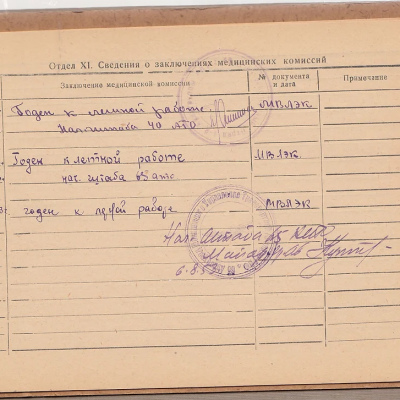 Отдел XI. Сведения о заключениях медицинских комиссий
Заключение медицинской комиссии
№ документа и дата
Примечание
Годен к летной работе. МВЛЭК
Нач. штаба 40 АТО
Годен к летной работе МВЛЭК
нач. штаба 65
годен к лётной работе МВЛЭК
Нач. Штаба 65
Майор
6.8.5